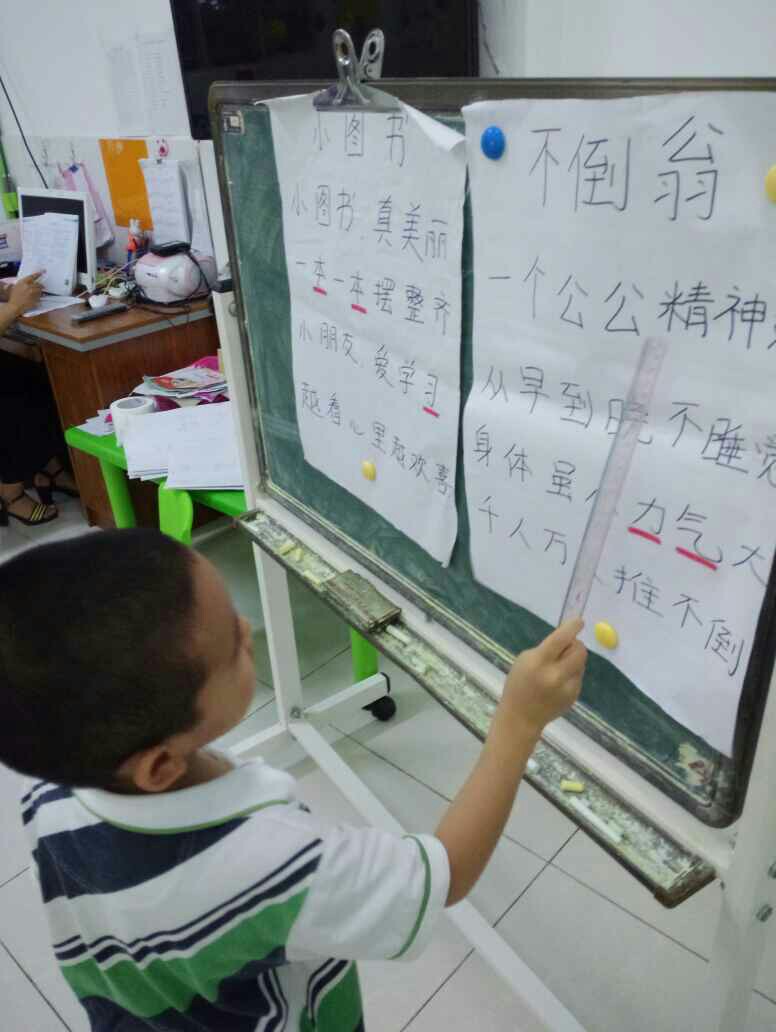 小图书
小图书,真美丽
一本一本摆整齐
小朋友,爱学习
越看心里越欢喜
不倒翁
一个公公精神
从早到晚不睡觉
身体虽小力气大
千人万人推不倒